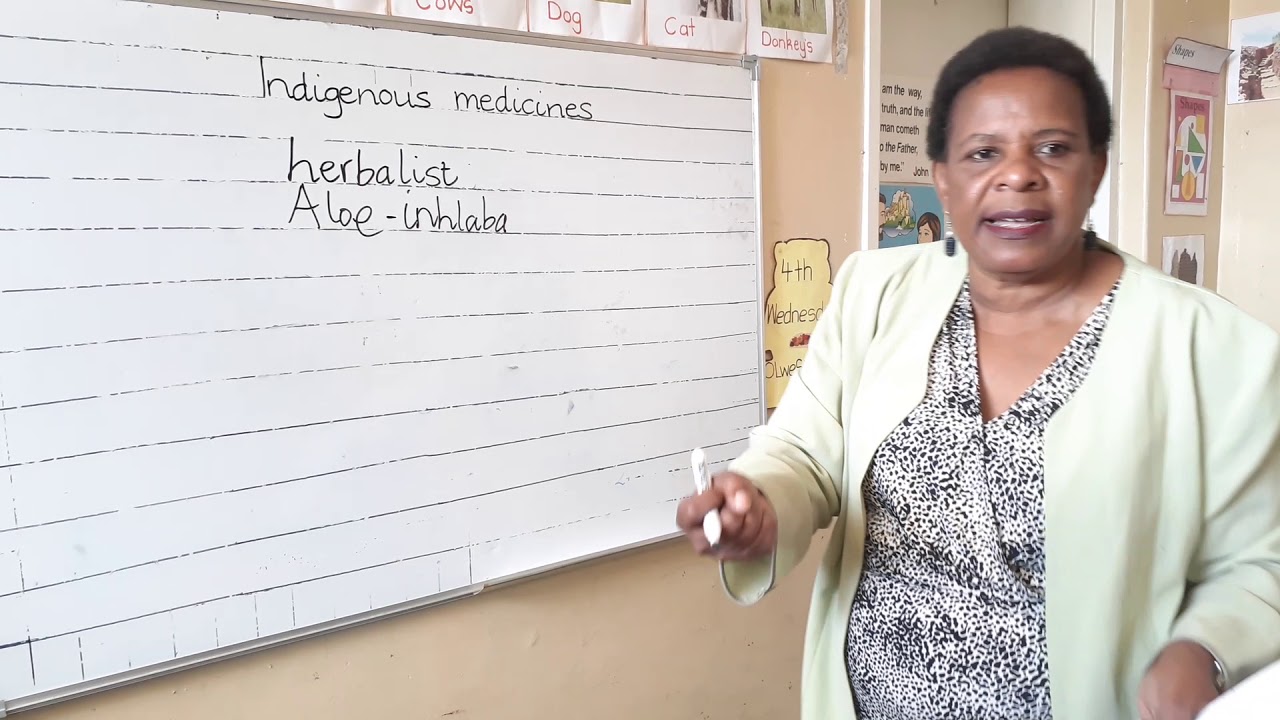 Cows
Dog
Cat
Donkeys
Indigenous medicines
herbalist
Aloe - inhlaba
am the way,
truth, and the
man cometh
the Father,
by me." John
4th
Shapes
Shapes